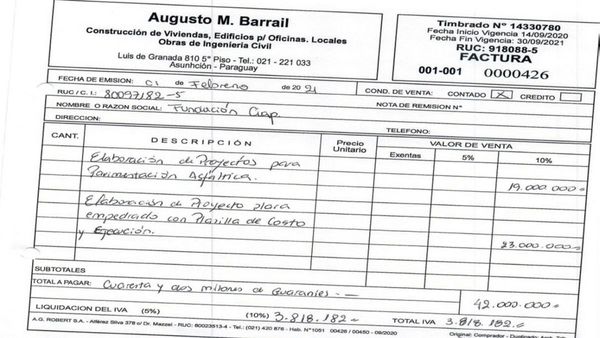 Augusto M. Barrail
Construcción de Viviendas, Edificios p/ Oficinas. Locales
Obras de Ingeniería Civil
Luis de Granada 810 5° Piso - Tel.: 021 - 221 033
Asunchión - Paraguay
Timbrado N° 14330780
Fecha Inicio Vigencia 14/09/2020
Fecha Fin Vigencia: 30/09/2021
RUC: 918088-5
FACTURA
001-001 0000426
FECHA DE EMISION: 01 de Febrero de 2021 COND. DE VENTA: CONTADO X CREDITO
RUC / C. I.: 80097182-5 NOTA DE REMISION N°
NOMBRE O RAZON SOCIAL: Fundación Crap.
DIRECCION: TELEFONO:
CANT. DESCRIPCIÓN Precio Unitario VALOR DE VENTA
Exentas 5% 10%
Elaboración de Proyectos para
Pavimentación Asfaltica. 19.000.000=
Elaboración de Proyecto para
empedrado con Planilla de Costo
y Ejecución. 23.000.000=
SUBTOTALES
TOTAL A PAGAR: Cuarenta y dos millones de Guaranies.— 42.000.000=
LIQUIDACION DEL IVA (5%) (10%) 3.818.182= TOTAL IVA 3.818.182=
A.G. ROBERT S.A. - Alférez Silva 378 c/ Dr. Mazzei - RUC: 80023513-4 - Tel.: (021) 420 876 - Hab. N°1051 00426 / 00450 - 09/2020 Original: Comprador - Duplicado: